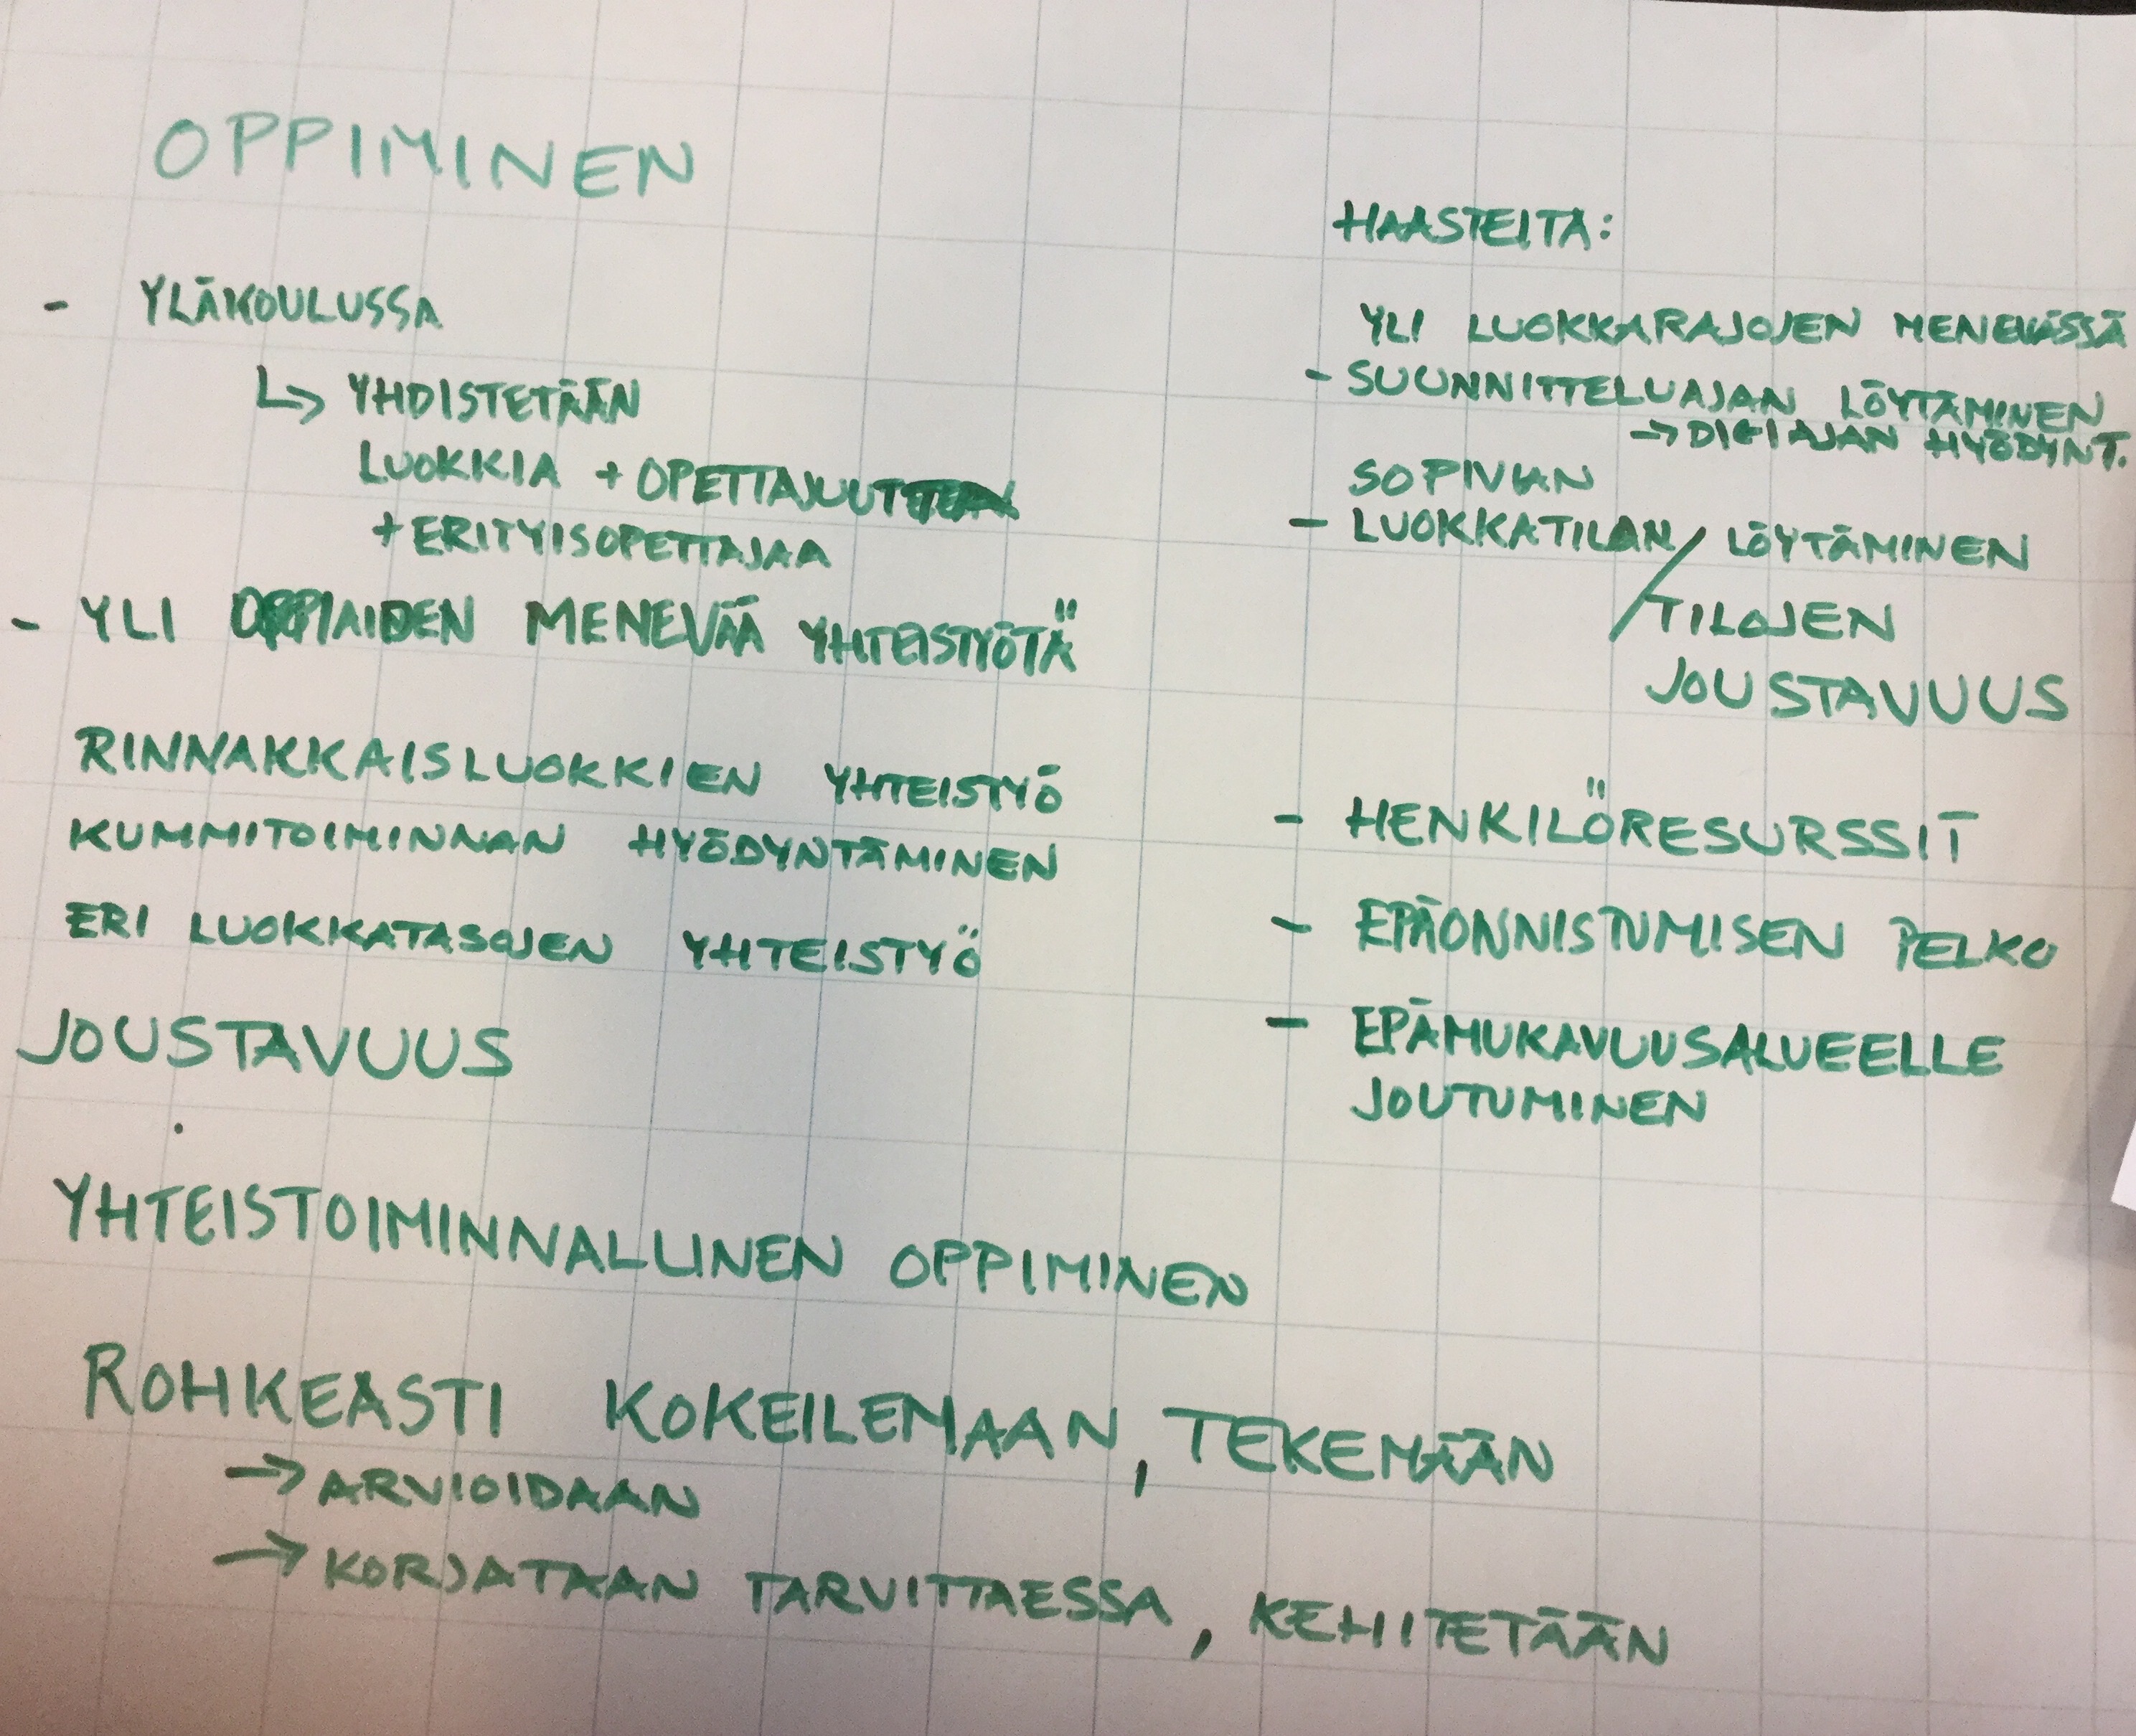 OPPIMINEN
- YLÄKOULUSSA
↳ YHDISTETÄÄN
LUOKKIA + OPETTAJUUT
+ ERITYISOPETTAJAA
- YLI OPPIAIDEN MENEVÄÄ YHTEISTYÖTÄ
RINNAKKAISLUOKKIEN YHTEISTYÖ
KUMMITOIMINNAN HYÖDYNTÄMINEN
ERI LUOKKATASOJEN YHTEISTYÖ
JOUSTAVUUS
YHTEISTOIMINNALLINEN OPPIMINEN
ROHKEASTI KOKEILEMAAN, TEKEMÄÄN
→ ARVIOIDAAN
→ KORJATAAN TARVITTAESSA, KEHITETÄÄN
HAASTEITA:
YLI LUOKKARAJOJEN MENEVÄSSÄ
- SUUNNITTELUAJAN LÖYTÄMINEN
→ DIGIAJAN HYÖDYNT.
SOPIVAN
- LUOKKATILAN / LÖYTÄMINEN
TILOJEN
JOUSTAVUUS
- HENKILÖRESURSSIT
- EPÄONNISTUMISEN PELKO
- EPÄMUKAVUUSALUEELLE
JOUTUMINEN